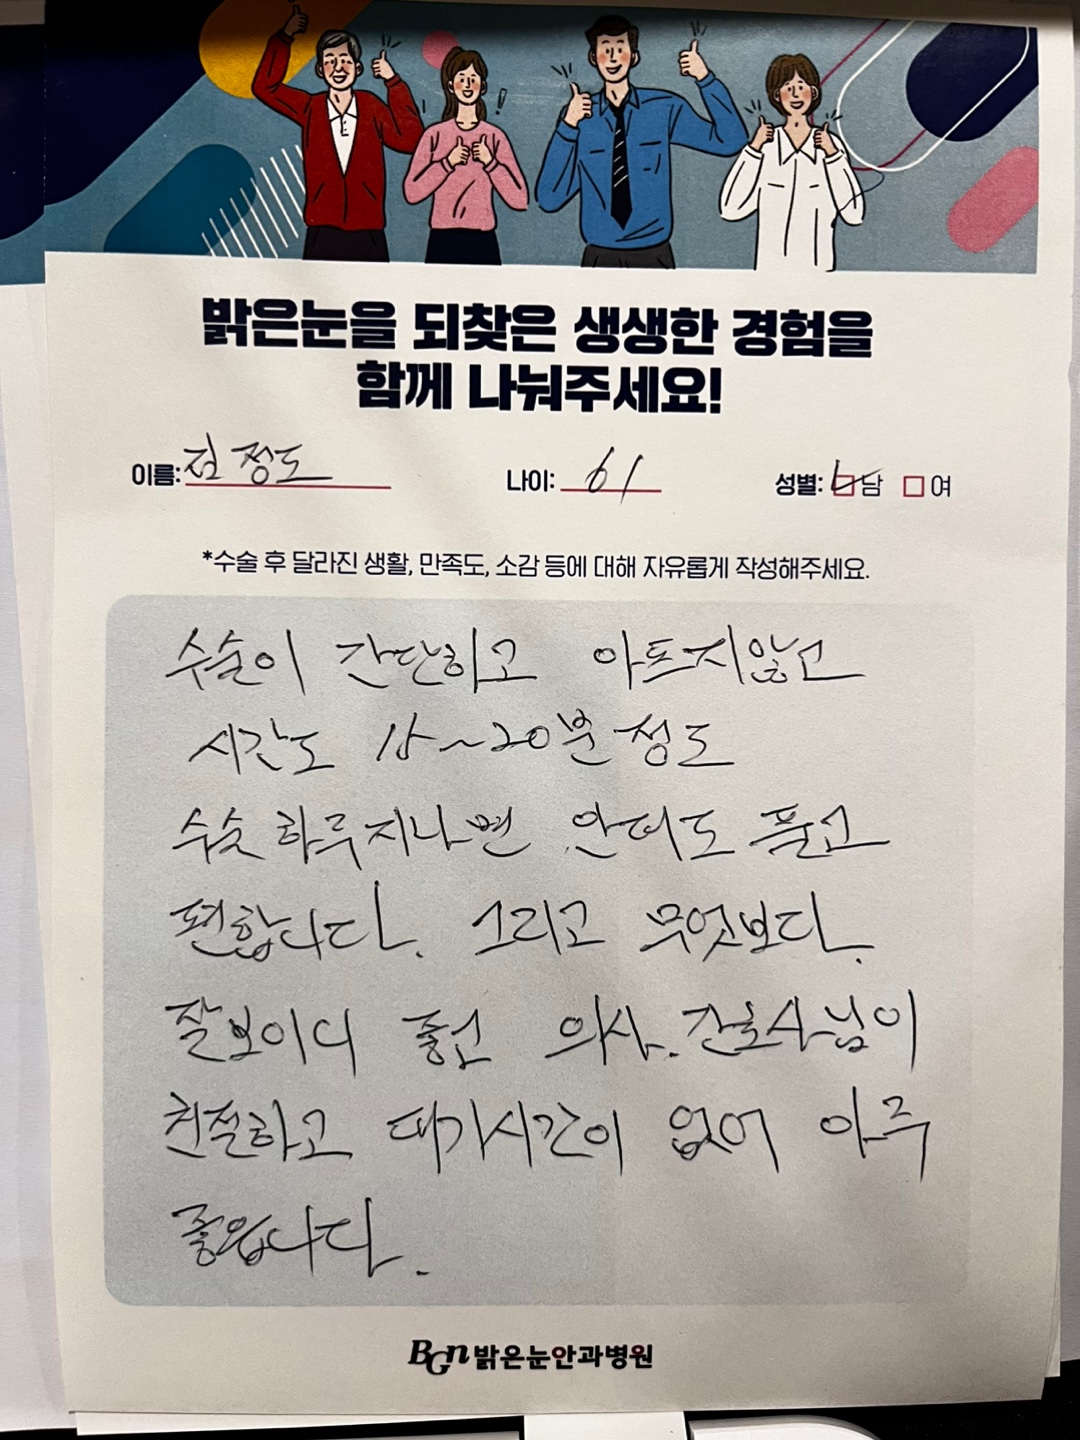 밝은눈을 되찾은 생생한 경험을
함께 나눠주세요!
이름: 정도 나이: 61 성별: 남 여
*수술 후 달라진 생활, 만족도, 소감 등에 대해 자유롭게 작성해주세요.
수술이 간단하고 아프지않고
시간도 15~20분 정도
수술 하루지나면 안대도 풀고
편합니다. 그리고 무엇보다.
잘보이니 좋고 의사. 간호사님이
친절하고 대기시간이 없어 아주
좋읍니다.
BGN 밝은눈안과병원